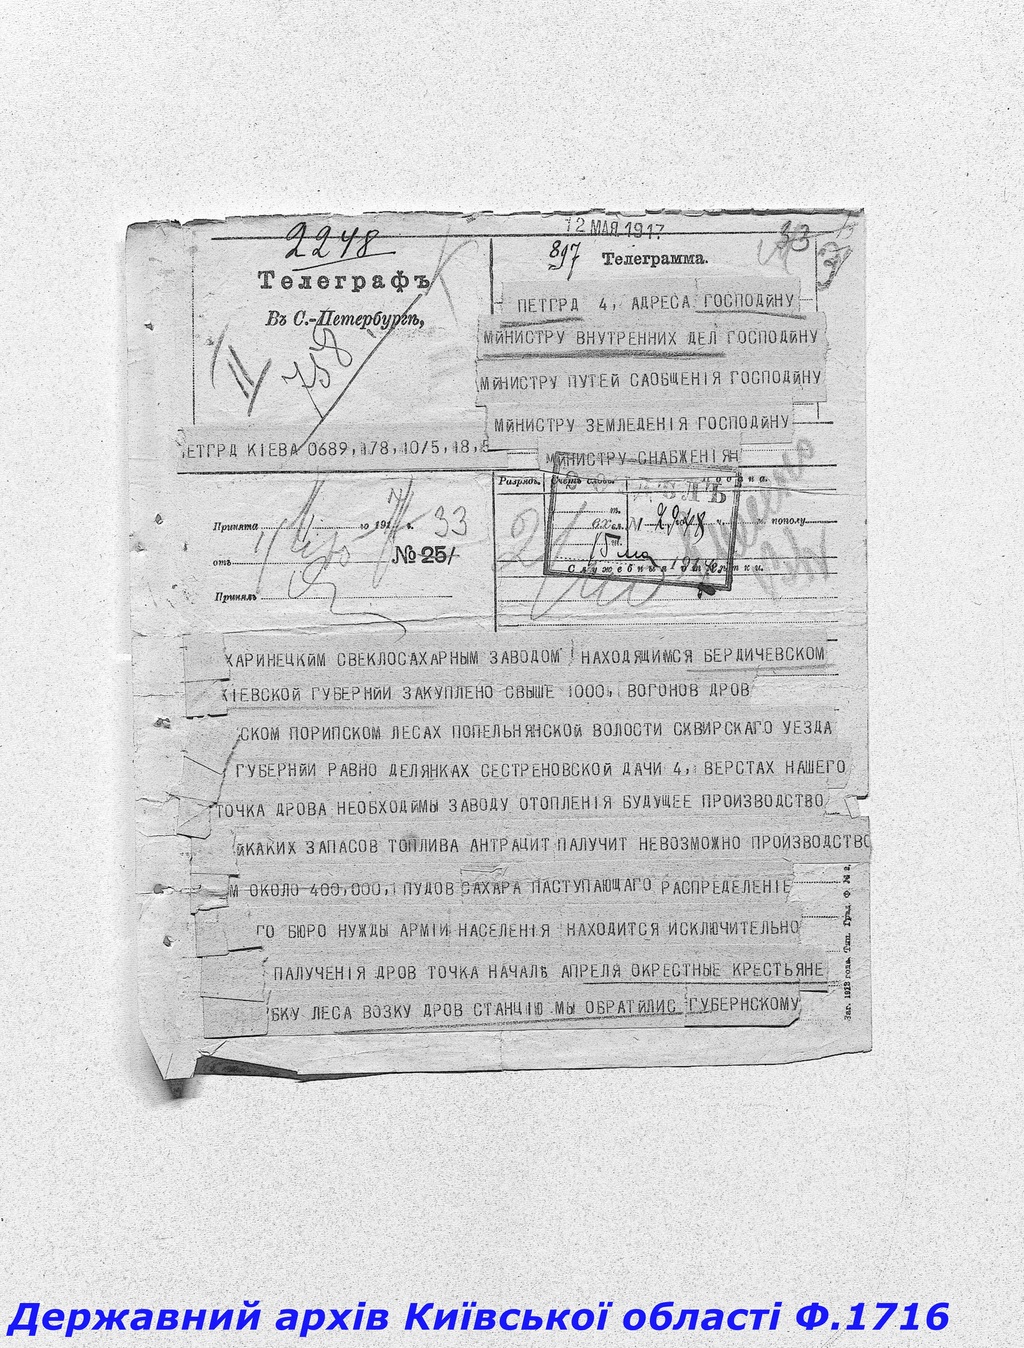 12 МАЯ 1917
2248
897
33
Телеграфъ
Въ С.-Петербургѣ,
Телеграмма.
758
ПЕТГРД 4, АДРЕСА ГОСПОДЙНУ
МЙНИСТРУ ВНУТРЕННИХ ДЕЛ ГОСПОДЙНУ
МЙНИСТРУ ПУТЕЙ САОБЩЕНІЯ ГОСПОДЙНУ
МЙНИСТРУ ЗЕМЛЕДЕНІЯ ГОСПОДЙНУ
МЙНИСТРУ СНАБЖЕНІЯН
ЕТГРД КІЕВА 0689,178,10/5,18,5
Разрядъ.
Счетъ словъ.
Принята
191
г.
33
отъ
№ 25/
Принялъ
Вх
№ 2248
ч.
м. пополу
15 мая 191
Служебныя отмѣтки.
ХАРИНЕЦКЙМ СВЕКЛОСАХАРНЫМ ЗАВОДОМ НАХОДЯЩИМСЯ БЕРДИЧЕВСКОМ
КІЕВСКОЙ ГУБЕРНЙИ ЗАКУПЛЕНО СВЫШЕ 1000, ВОГОНОВ ДРОВ
СКОМ ПОРИПСКОМ ЛЕСАХ ПОПЕЛЬНЯНСКОЙ ВОЛОСТИ СКВИРСКАГО УЕЗДА
ГУБЕРНЙИ РАВНО ДЕЛЯНКАХ СЕСТРЕНОВСКОЙ ДАЧИ 4, ВЕРСТАХ НАШЕГО
ТОЧКА ДРОВА НЕОБХОДЙМЫ ЗАВОДУ ОТОПЛЕНІЯ БУДУЩЕЕ ПРОИЗВОДСТВО
ЙКАКИХ ЗАПАСОВ ТОПЛИВА АНТРАЦИТ ПАЛУЧИТ НЕВОЗМОЖНО ПРОИЗВОДСТВО
М ОКОЛО 400,000, ПУДОВ САХАРА ПАСТУПАЮЩАГО РАСПРЕДЕЛЕНІЕ
ГО БЮРО НУЖДЫ АРМІИ НАСЕЛЕНІЯ НАХОДИТСЯ ИСКЛЮЧИТЕЛЬНО
ПАЛУЧЕНІЯ ДРОВ ТОЧКА НАЧАЛЬ АПРЕЛЯ ОКРЕСТНЫЕ КРЕСТЬЯНЕ
БКУ ЛЕСА ВОЗКУ ДРОВ СТАНЦІЮ МЫ ОБРАТЙЛИС ГУБЕРНСКОМУ
Заг. 1912 года. Тип. Град. Ф. № 2.
Державний архів Київської області Ф.1716